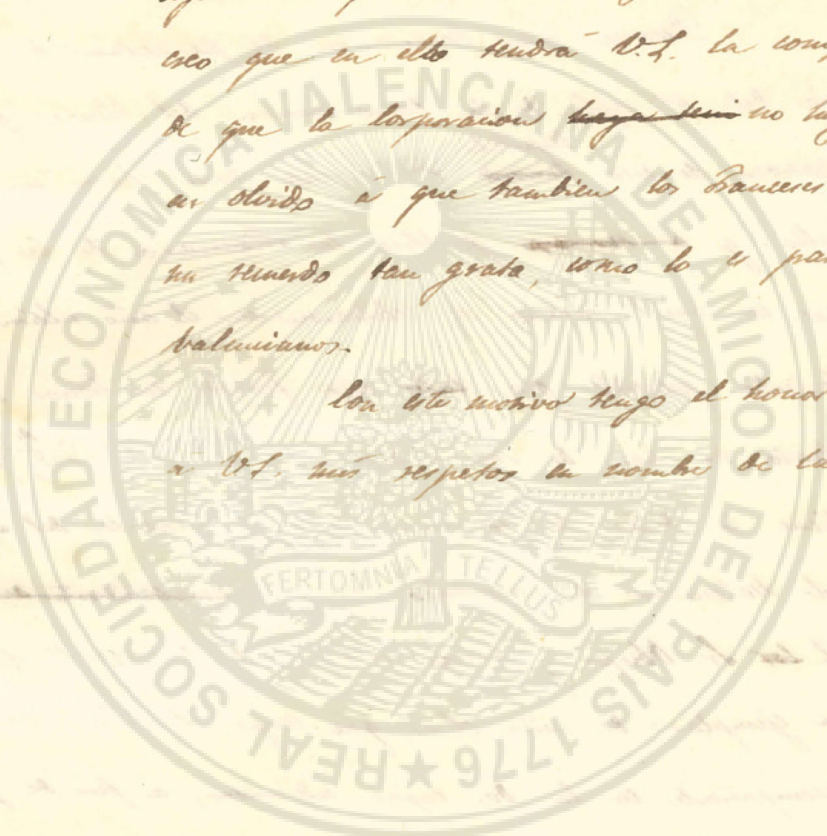 creo que en ello tendrá V.S. la
de que la Corporacion haya no
en olvido á que tambien los Franceses
un recuerdo tan grato, como lo es
Valencianos.
Con este motivo tengo el honor
á V.S. mis respetos en nombre de la
REAL SOCIEDAD ECONOMICA VALENCIANA DE AMIGOS DEL PAIS 1776 ★
FERT OMNIA TELLUS